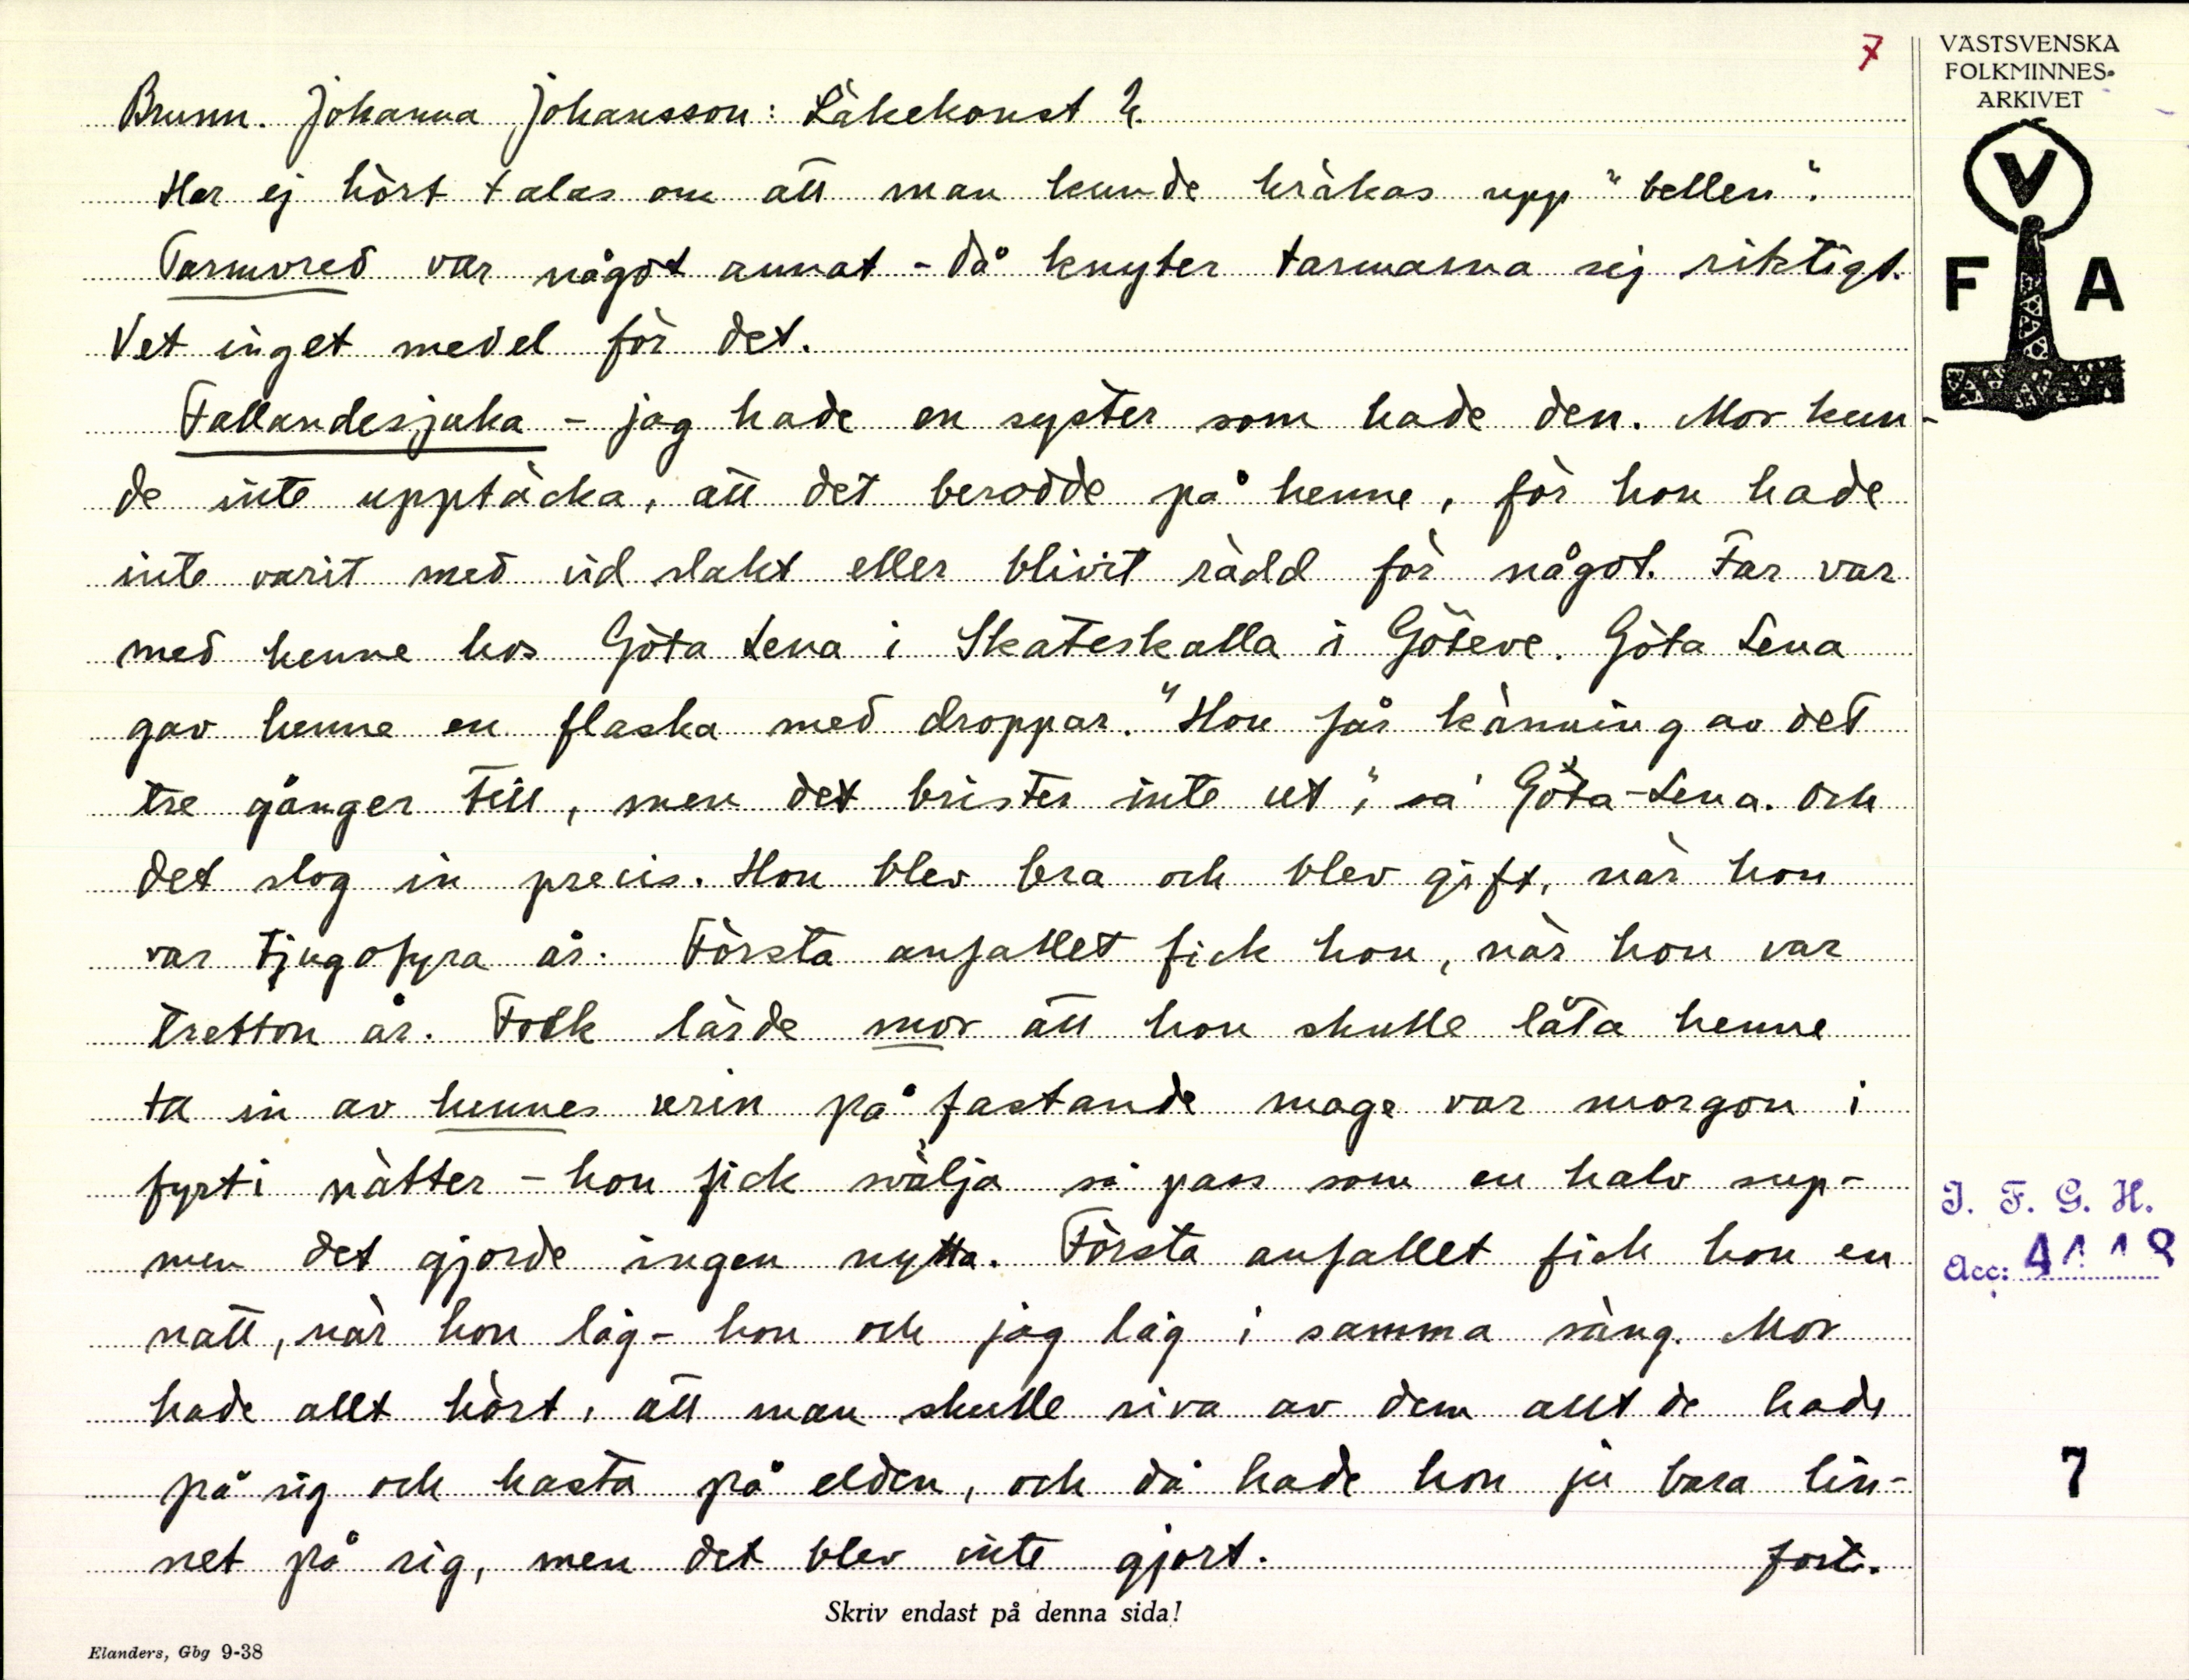 7
VÄSTSVENSKA
FOLKMINNES-
ARKIVET
V
F A
Brunn. Johanna Johansson: Läkekonst 2.
Har ej hört talas om att man kunde kräkas upp "bellen".
Tarmvred var något annat - då knyter tarmarna sig riktigt.
Vet inget medel för det.
Fallandesjuka - jag hade en syster som hade den. Mor kun-
de inte upptäcka, att det berodde på henne, för hon hade
inte varit med vid slakt eller blivit rädd för något. Far var
med henne hos Göta Lena i Skåteskalla i Göteve. Göta Lena
gav henne en flaska med droppar. "Hon får känning av det
tre gånger till, men det brister inte ut", sa Göta-Lena. Och
det slog in precis. Hon blev bra och blev gift, när hon
var tjugofyra år. Första anfallet fick hon, när hon var
tretton år. Folk lärde mor att hon skulle låta henne
ta in av hennes urin på fastande mage var morgon i
fyrti nätter - hon fick svälja så pass som en halv sup -
men det gjorde ingen nytta. Första anfallet fick hon en
natt, när hon låg - hon och jag låg i samma säng. Mor
hade allt hört, att man skulle riva av dem allt de hade
på sig och kasta på elden, och då hade hon ju bara lin-
net på sig, men det blev inte gjort. forts.
I. F. G. H.
Acc: 4118
7
Skriv endast på denna sida!
Elanders, Gbg 9-38